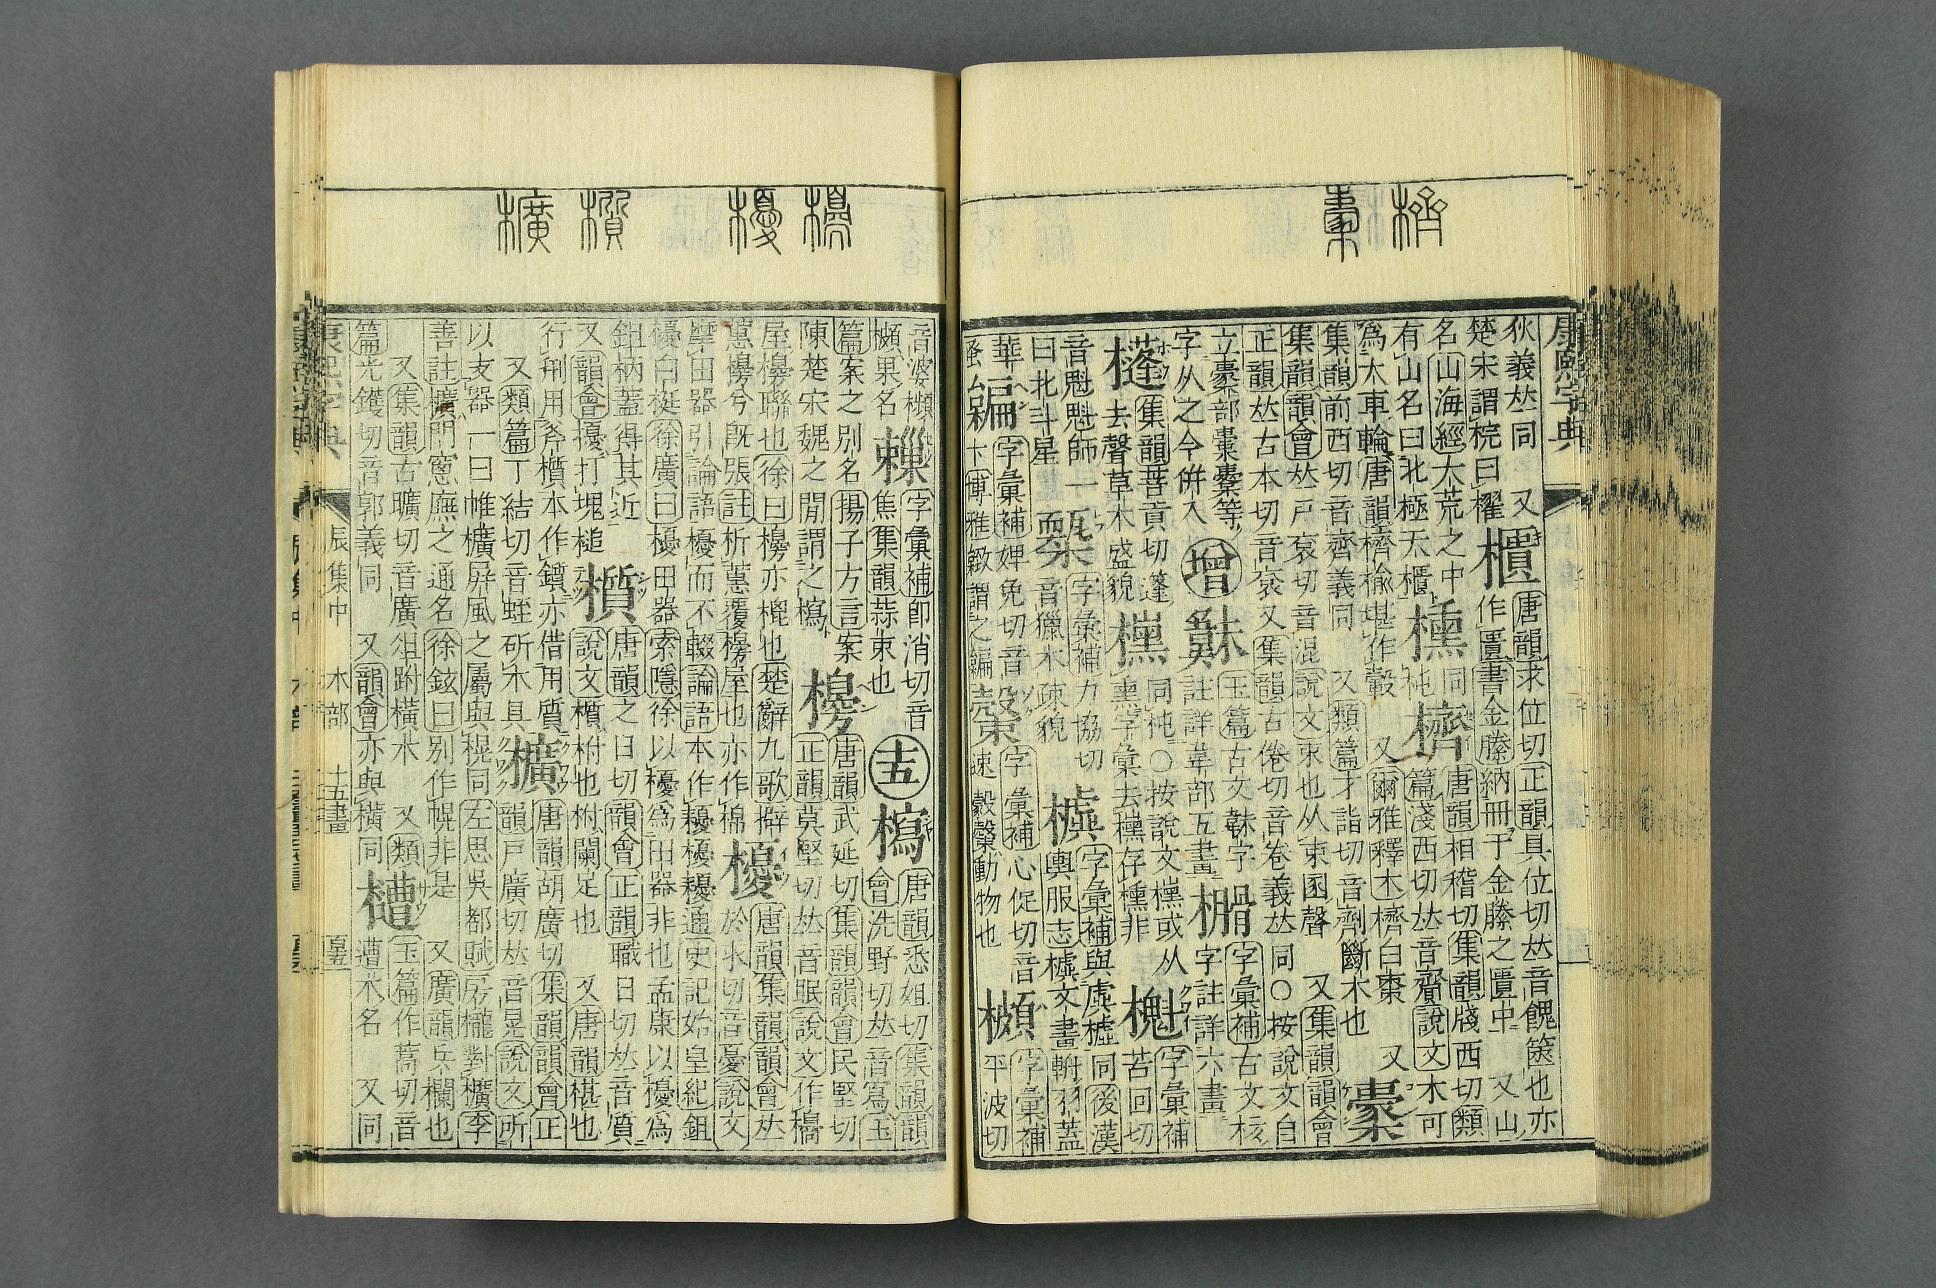 康熙字典
狄義𠀤同 又 櫃 唐韻求位切正韻具位切𠀤音餽篋也亦
楚宋謂梡曰櫂 作匱書金縢納冊于金縢之匱中 又山
名山海經大荒之中 櫄 同杶 櫅 唐韻相稽切集韻牋西切類
有山名曰北極天櫃 篇淺西切𠀤音齎說文木可
爲大車輪唐韻櫅楡堪作轂 又爾雅釋木櫅白棗 又
集韻前西切音齊義同 又類篇才詣切音劑斷木也 㯻
集韻韻會𠀤戸袞切音混說文束也从束圂聲 又集韻韻會
正韻𠀤古本切音袞又集韻古倦切音卷義𠀤同○按說文自
立㯻部橐櫜等 增 玉篇古文韎字 字彙補古文核
字从之今倂入 註詳韋部五畫 字註詳六畫
櫣 集韻菩貢切蓬 欓 同杶○按說文或从 櫆 字彙補
去聲草木盛貌 熏字彙去存櫄非 苦回切
音魁魁師一 字彙補力協切 㯫 字彙補與虛墟同後漢
曰北斗星 音獵木疎貌 輿服志文畫輈羽蓋
華 字彙補婢免切音 字彙補心促切音 㰋 字彙補
蚤 卞博雅緻謂之 速 動物也 平波切
音婆㰋 字彙補卽消切音 十五 㯷 唐韻悉姐切集韻韻
㰋果名 焦集韻蒜束也 會洗野切𠀤音寫玉
篇案之別名揚子方言案 櫋 唐韻武延切集韻韻會民堅切
陳楚宋魏之閒謂之㯷 正韻莫堅切𠀤音眠說文作櫋
屋櫋聯也徐曰櫋亦梍也楚辭九歌擗 櫌 唐韻集韻韻會𠀤
蕙櫋兮旣張註析蕙覆櫋屋也亦作棉 於求切音憂說文
摩田器引論語櫌而不輟論語本作耰櫌耰通史記始皇紀鉏
櫌白梃徐廣曰櫌田器索隱徐以櫌爲田器非也孟康以櫌爲
鉏柄蓋得其近 櫍 唐韻之日切韻會正韻職日切𠀤音質
又韻會櫌打塊槌 說文櫍柎也柎闌足也 又唐韻椹也
行刑用斧櫍本作鑕亦借用質 櫎 唐韻胡廣切集韻韻會正
又類篇丁結切音蛭斫木具 韻戸廣切𠀤音晃說文所
以支器一曰帷櫎屛風之屬與榥同左思吳都賦房櫳對櫎李
善註櫎門窻廡之通名徐鉉曰別作幌非是 又廣韻兵欄也
又集韻古曠切音廣俎跗橫木 槽 又類篇玉篇作蒿切音
篇光鑊切音郭義同 又韻會亦與橫同 遭木名 又同
康熙字典 辰集中 木部 十五畫